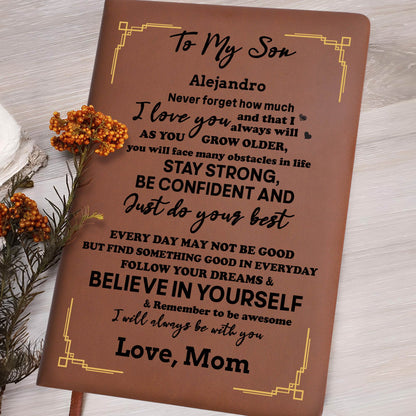 To My Son
Alejandro
Never forget how much
I love you and that I always will
AS YOU GROW OLDER,
you will face many obstacles in life
STAY STRONG,
BE CONFIDENT AND
Just do your best
EVERY DAY MAY NOT BE GOOD
BUT FIND SOMETHING GOOD IN EVERYDAY
FOLLOW YOUR DREAMS &
BELIEVE IN YOURSELF
& Remember to be awesome
I will always be with you
Love, Mom